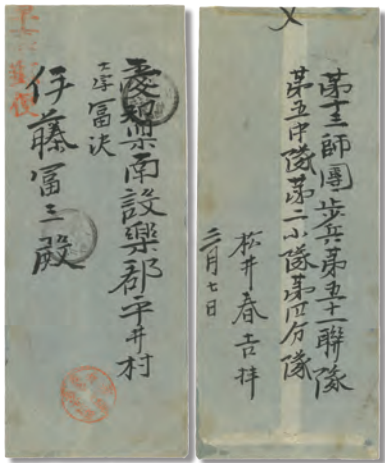 軍事郵便
愛知県南設樂郡平井村
大字冨決
伊藤冨三殿
〆
第十三師團歩兵第五十一聯隊
第五中隊第二小隊第四分隊
松井春吉拝
二月七日